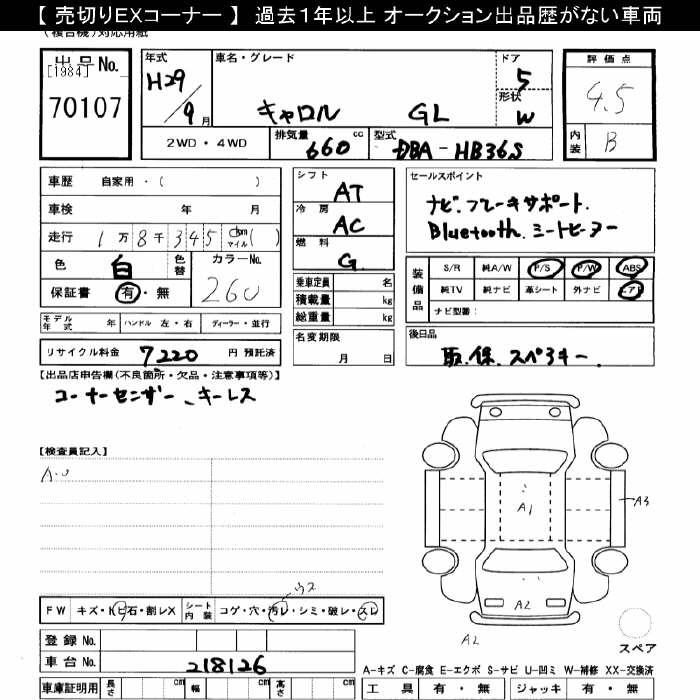 【 売切りEXコーナー 】 過去1年以上 オークション出品歴がない車両
(複合機)対応用紙
出品No.
[1984]
70107
年式
H29/9月
車名・グレード
キャロル GL
ドア
5
形状
W
2WD・4WD
排気量
660 cc
型式
DBA-HB36S
評価点
4.5
内装
B
車歴 自家用・( )
車検 年 月
走行 1万8千345 km マイル( )
色 白 色替
カラーNo.
260
保証書 有・無
モデル年式 年 ハンドル 左・右 ディーラー・並行
リサイクル料金 7220 円 預託済
シフト
AT
冷房
AC
燃料
G
乗車定員 名
積載量 kg
総重量 kg
名変期限
月 日
セールスポイント
ナビ.ブレーキサポート.
Bluetooth.シートヒーター
装備品
S/R 純A/W P/S P/W ABS
純TV 純ナビ 革シート 外ナビ エアB
ナビ型番:
後日品
取.保.スペアキー.
【出品店申告欄(不良箇所・欠品・注意事項等)】
コーナーセンサー、キーレス
【検査員記入】
A・U
A1
A3
A2
A2
スペア
ウス
FW キズ・ヒ石・割レX
シート内装 コゲ・穴・汚レ・シミ・破レ・スレ
登録No.
車台No. 218126
車庫証明用 長さ cm 幅 cm 高さ cm
A-キズ C-腐食 E-エクボ S-サビ U-凹ミ W-補修 XX-交換済
工具 有・無 ジャッキ 有・無